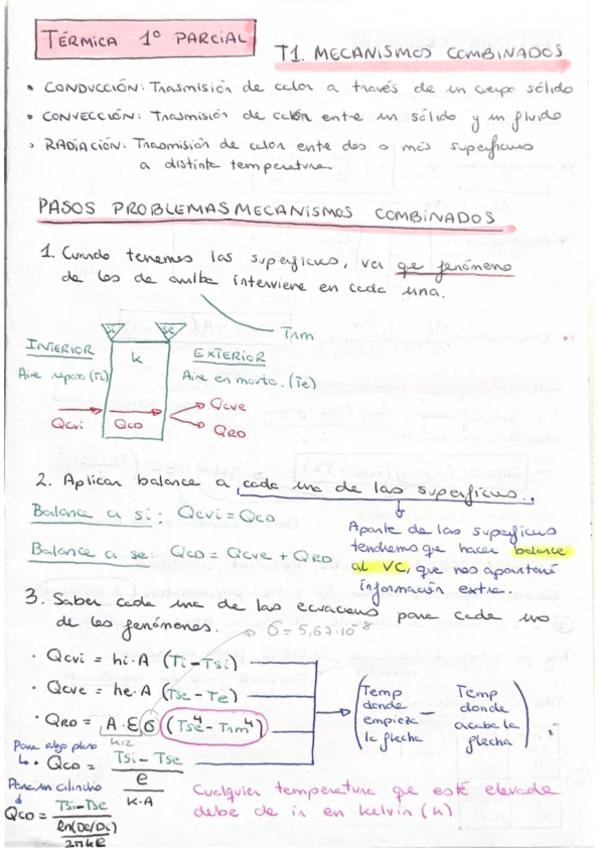 TÉRMICA 1º PARCIAL
T1. MECANISMOS COMBINADOS
• CONDUCCIÓN: Trasmisión de calor a través de un cuerpo sólido
• CONVECCIÓN: Trasmisión de calor entre un sólido y un fluido
• RADIACIÓN: Trasmisión de calor ente dos o más superficies
a distinta temperatura
PASOS PROBLEMAS MECANISMOS COMBINADOS
1. Cuando tenemos las superficies, ver que fenómeno
de los de arriba interviene en cada una.
Tnm
si
se
k
INTERIOR
EXTERIOR
Aire reposo (Ti)
Aire en movto. (Te)
Qcvi
QCD
Qcve
QRD
2. Aplicar balance a cada una de las superficies.
Balance a si: Qcvi = QCD
Balance a se: QCD = Qcve + QRD
Aparte de las superficies
tendremos que hacer balance
al VC, que nos aportará
información extra.
3. Saber cada una de las ecuaciones para cada uno
de los fenómenos.
σ = 5,67·10⁻⁸
• Qcvi = hi·A (Ti - Tsi)
• Qcve = he·A (Tse - Te)
• QRD = A·Ɛ σ (Tse⁴ - Tnm⁴)
(Temp donde empieza la flecha - Temp donde acaba la flecha)
Para algo plano
• QCD = Tsi - Tse / e / K·A
Para un cilindro
QCD = Tsi - Tse / ln(De/Di) / 2πkl
Cualquier temperatura que esté elevada
debe de ir en kelvin (k)